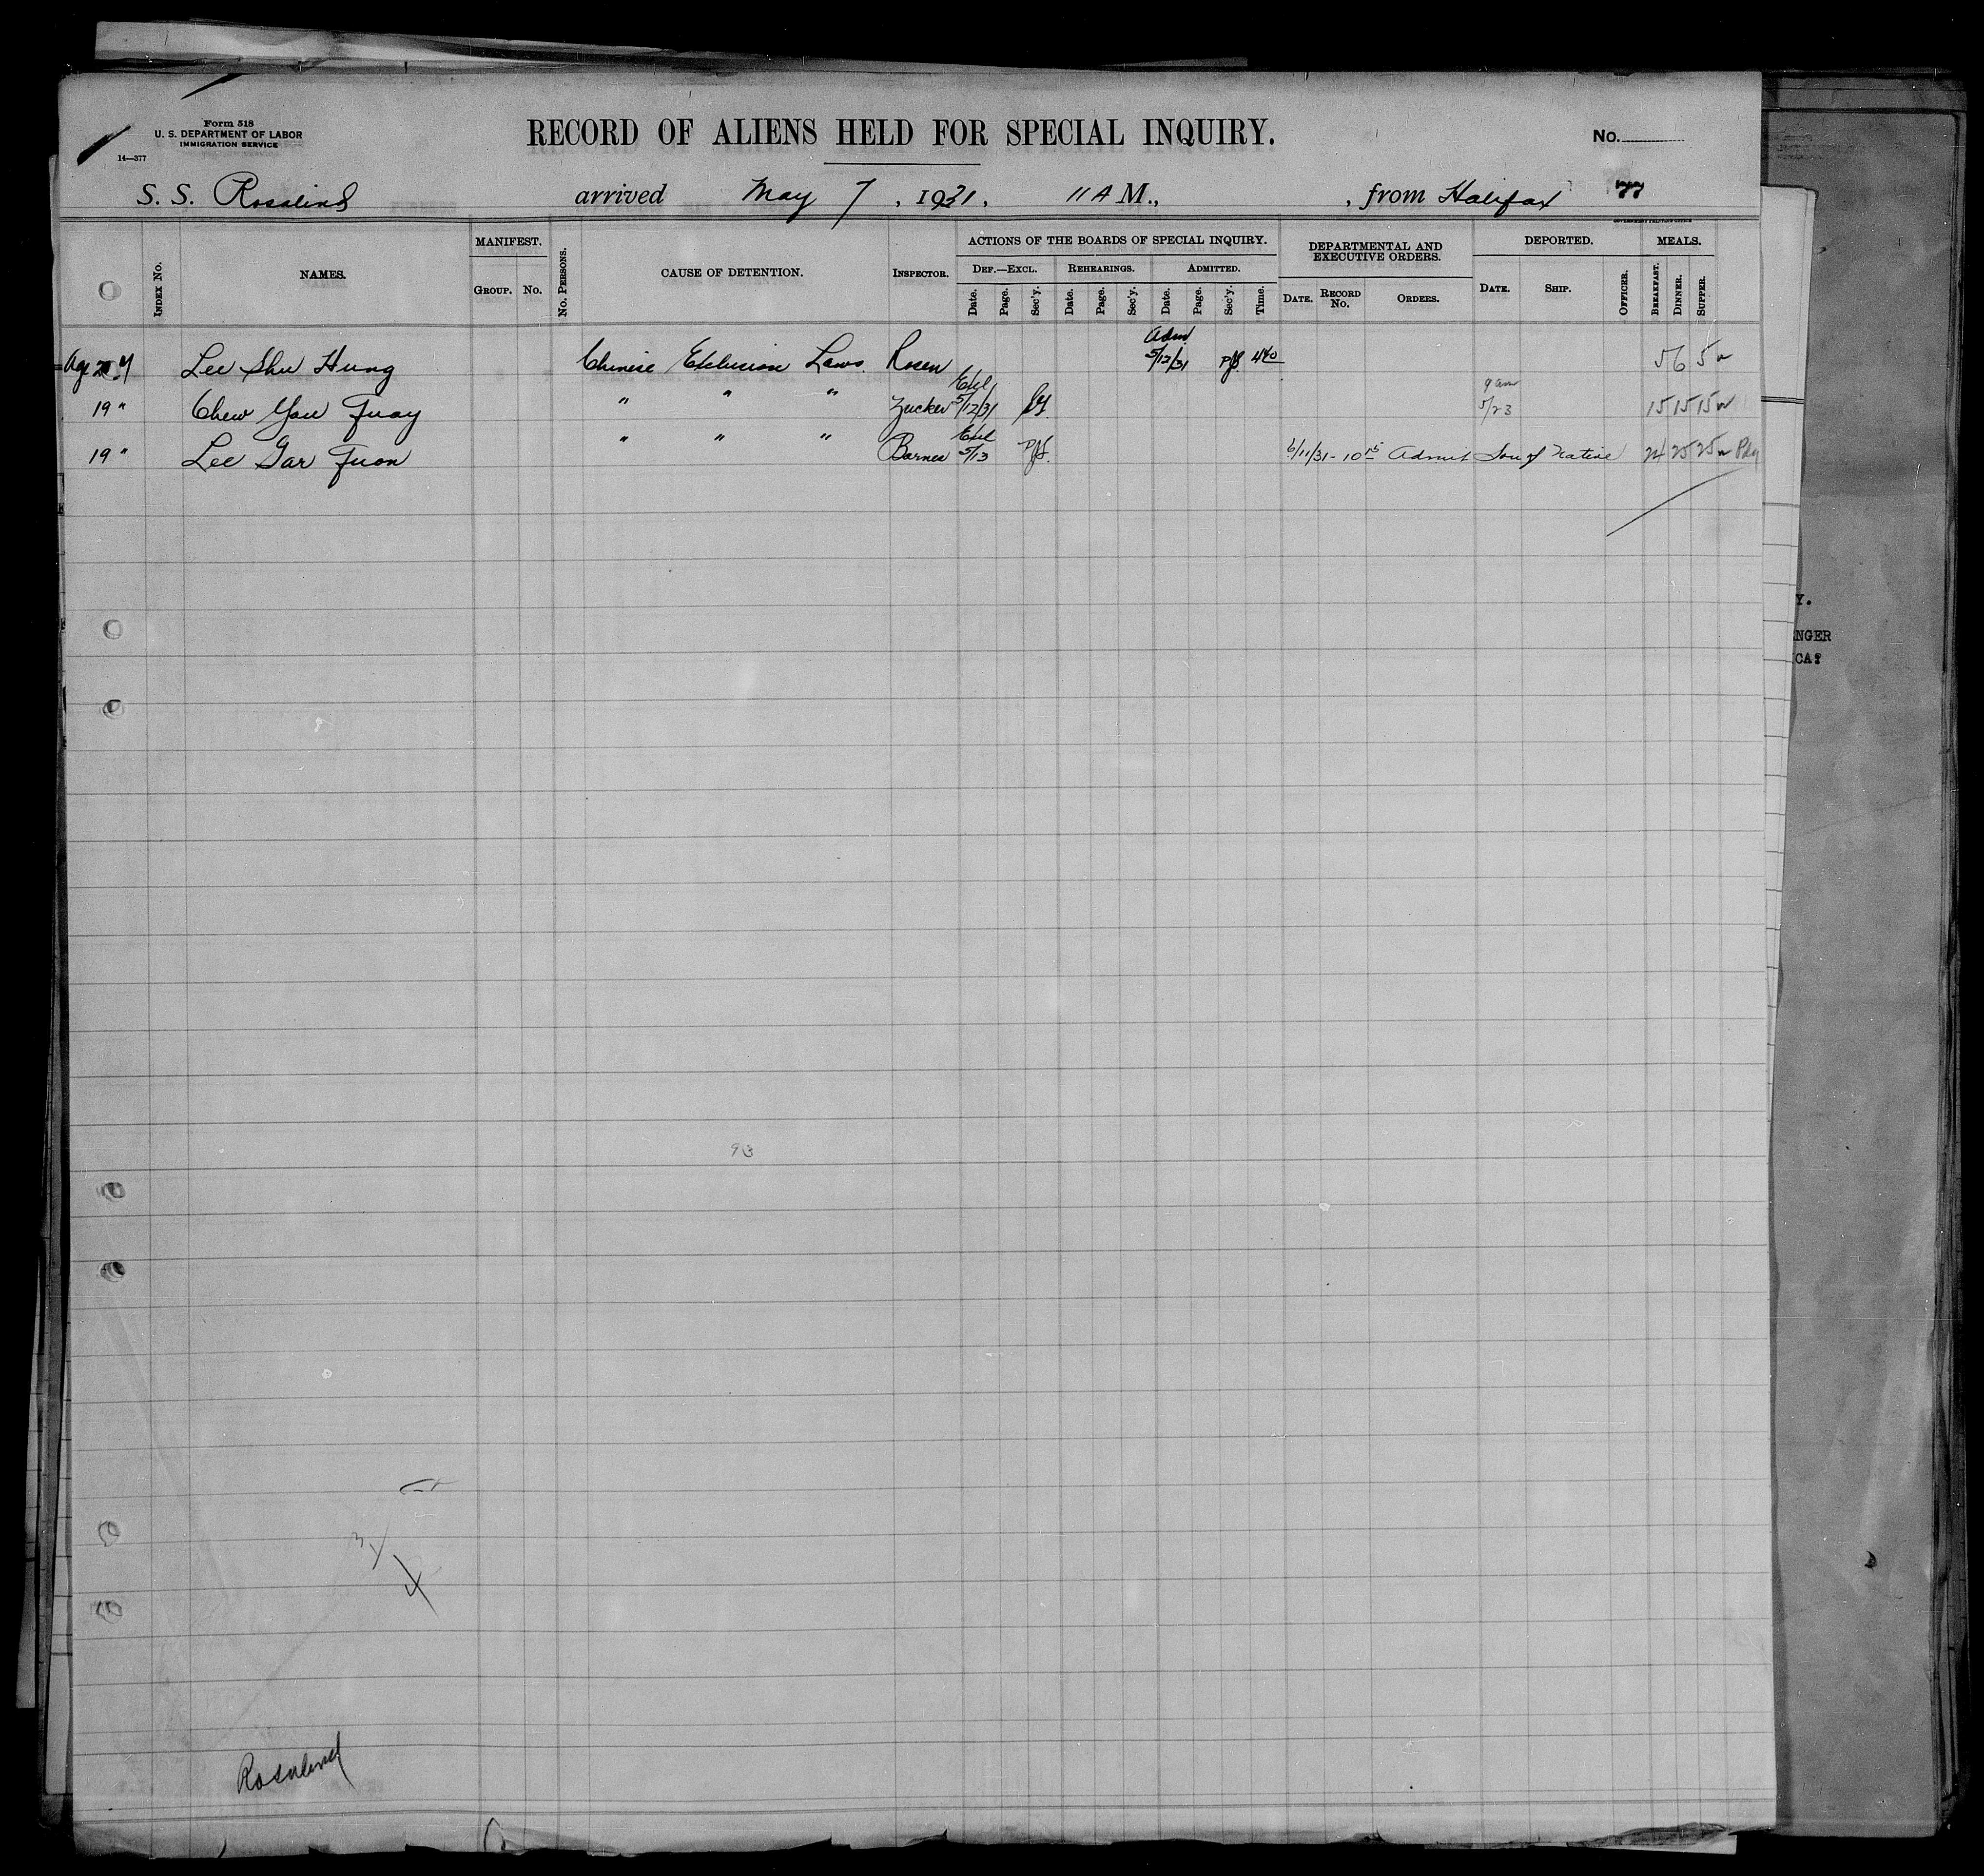 Form 518
U. S. DEPARTMENT OF LABOR
IMMIGRATION SERVICE
14—377
RECORD OF ALIENS HELD FOR SPECIAL INQUIRY.
No.
S. S. Rosalind arrived May 7, 1931, 11 A M., , from Halifax 77
GOVERNMENT PRINTING OFFICE
INDEX No.
NAMES.
MANIFEST.
GROUP. No.
No. PERSONS.
CAUSE OF DETENTION.
INSPECTOR.
ACTIONS OF THE BOARDS OF SPECIAL INQUIRY.
DEF.—EXCL. REHEARINGS. ADMITTED.
Date. Page. Sec'y. Date. Page. Sec'y. Date. Page. Sec'y. Time.
DEPARTMENTAL AND
EXECUTIVE ORDERS.
DATE. RECORD No. ORDERS.
DEPORTED.
DATE. SHIP. OFFICER.
MEALS.
BREAKFAST. DINNER. SUPPER.
Adm
Lee Shu Hung Chinese Exclusion Laws Rosen 5/12/31 PJS 440 5 6 5
Excl 9 am
19 " Chew You Quay " " " Zucker 5/12/31 5/23 15 15 15
Excl
19 " Lee Gar Quon " " " Barnes 5/13 PJS 6/11/31 - 10 15 Admit Son of Native 24 25 25
93
Rosalind
Y.
NGER
CA?